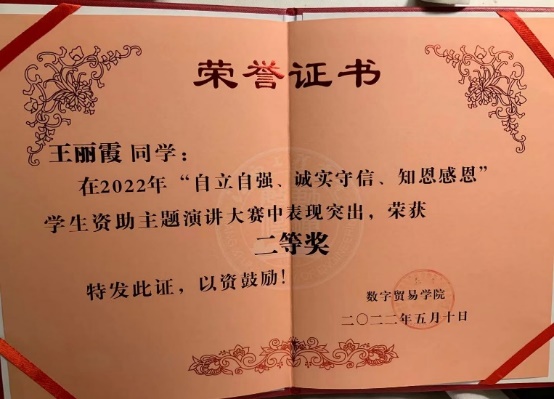 荣誉证书
王丽霞 同学：
在2022年“自立自强、诚实守信、知恩感恩”
学生资助主题演讲大赛中表现突出，荣获
二等奖
特发此证，以资鼓励！
数字贸易学院
二〇二二年五月十日